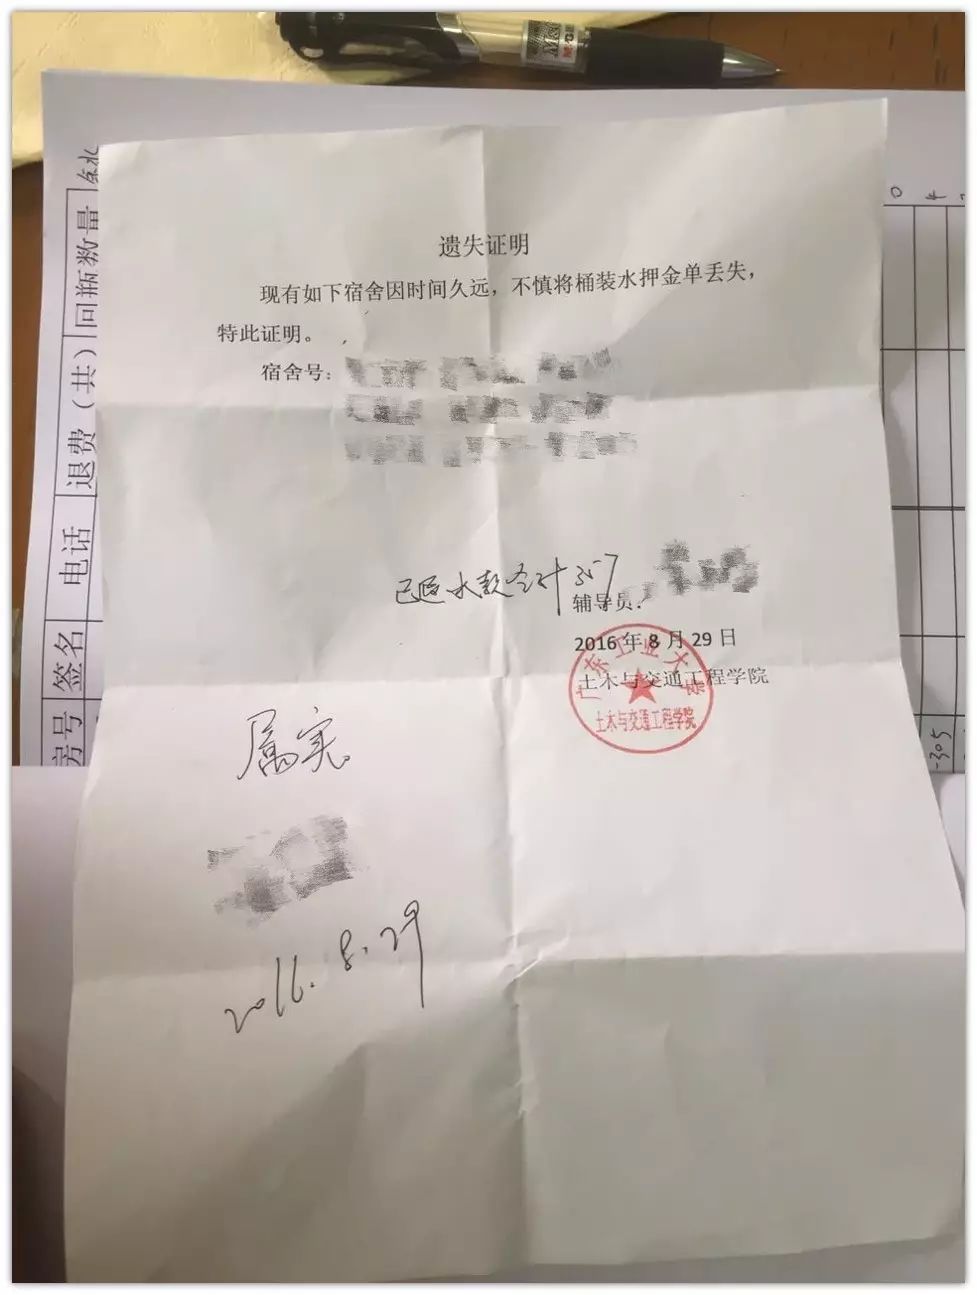 遗失证明
现有如下宿舍因时间久远，不慎将桶装水押金单丢失，
特此证明。
宿舍号：
已退水款合计357
辅导员：
2016年8月29日
土木与交通工程学院
广东工业大学
土木与交通工程学院
属实
2016.8.29
房号 签名 电话 退费（共） 回瓶数量
M&G
0
4
-305